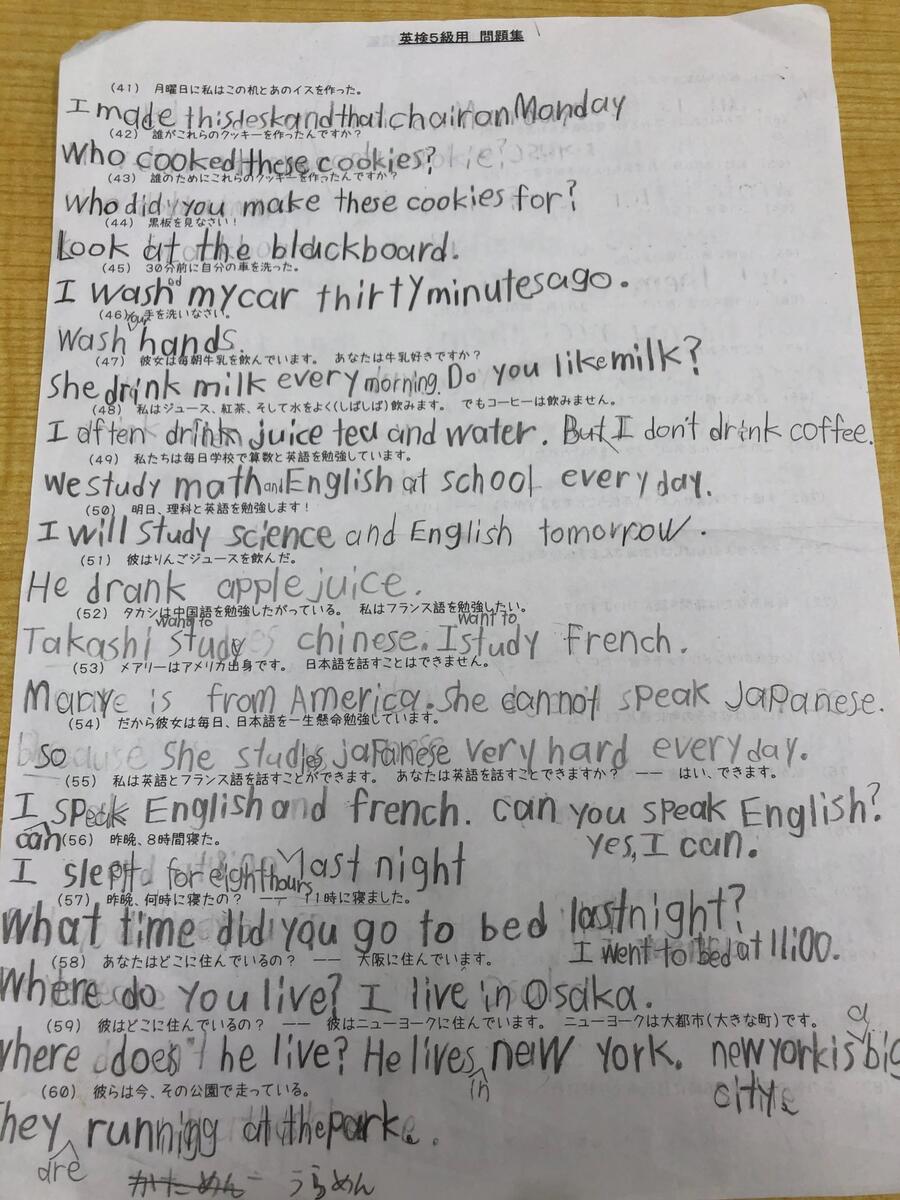 英検5級用 問題集
(41) 月曜日に私はこの机とあのイスを作った。
I made this desk and that chair on Monday
(42) 誰がこれらのクッキーを作ったんですか?
Who cooked these cookies?
(43) 誰のためにこれらのクッキーを作ったんですか?
Who did you make these cookies for?
(44) 黒板を見なさい!
Look at the blackboard.
(45) 30分前に自分の車を洗った。
I washed my car thirty minutes ago.
(46) 手を洗いなさい。
Wash your hands.
(47) 彼女は毎朝牛乳を飲んでいます。 あなたは牛乳好きですか?
She drink milk every morning. Do you like milk?
(48) 私はジュース、紅茶、そして水をよく(しばしば)飲みます。 でもコーヒーは飲みません。
I often drink juice tea and water. But I don't drink coffee.
(49) 私たちは毎日学校で算数と英語を勉強しています。
We study math and English at school every day.
(50) 明日、理科と英語を勉強します!
I will study science and English tomorrow.
(51) 彼はりんごジュースを飲んだ。
He drank apple juice.
(52) タカシは中国語を勉強したがっている。 私はフランス語を勉強したい。
Takashi want to study chinese. I want to study French.
(53) メアリーはアメリカ出身です。 日本語を話すことはできません。
Mary is from America. She cannot speak Japanese.
(54) だから彼女は毎日、日本語を一生懸命勉強しています。
so she studies japanese very hard every day.
(55) 私は英語とフランス語を話すことができます。 あなたは英語を話すことできますか? ―― はい、できます。
I can speak English and french. can you speak English?
yes, I can.
(56) 昨晩、8時間寝た。
I slept for eight hours last night
(57) 昨晩、何時に寝たの? ―― 11時に寝ました。
What time did you go to bed last night?
I went to bed at 11:00.
(58) あなたはどこに住んでいるの? ―― 大阪に住んでいます。
Where do you live? I live in Osaka.
(59) 彼はどこに住んでいるの? ―― 彼はニューヨークに住んでいます。 ニューヨークは大都市(大きな町)です。
Where does he live? He lives in new York. new york is a big
city.
(60) 彼らは今、その公園で走っている。
They are running at the park.
かためん うらめん